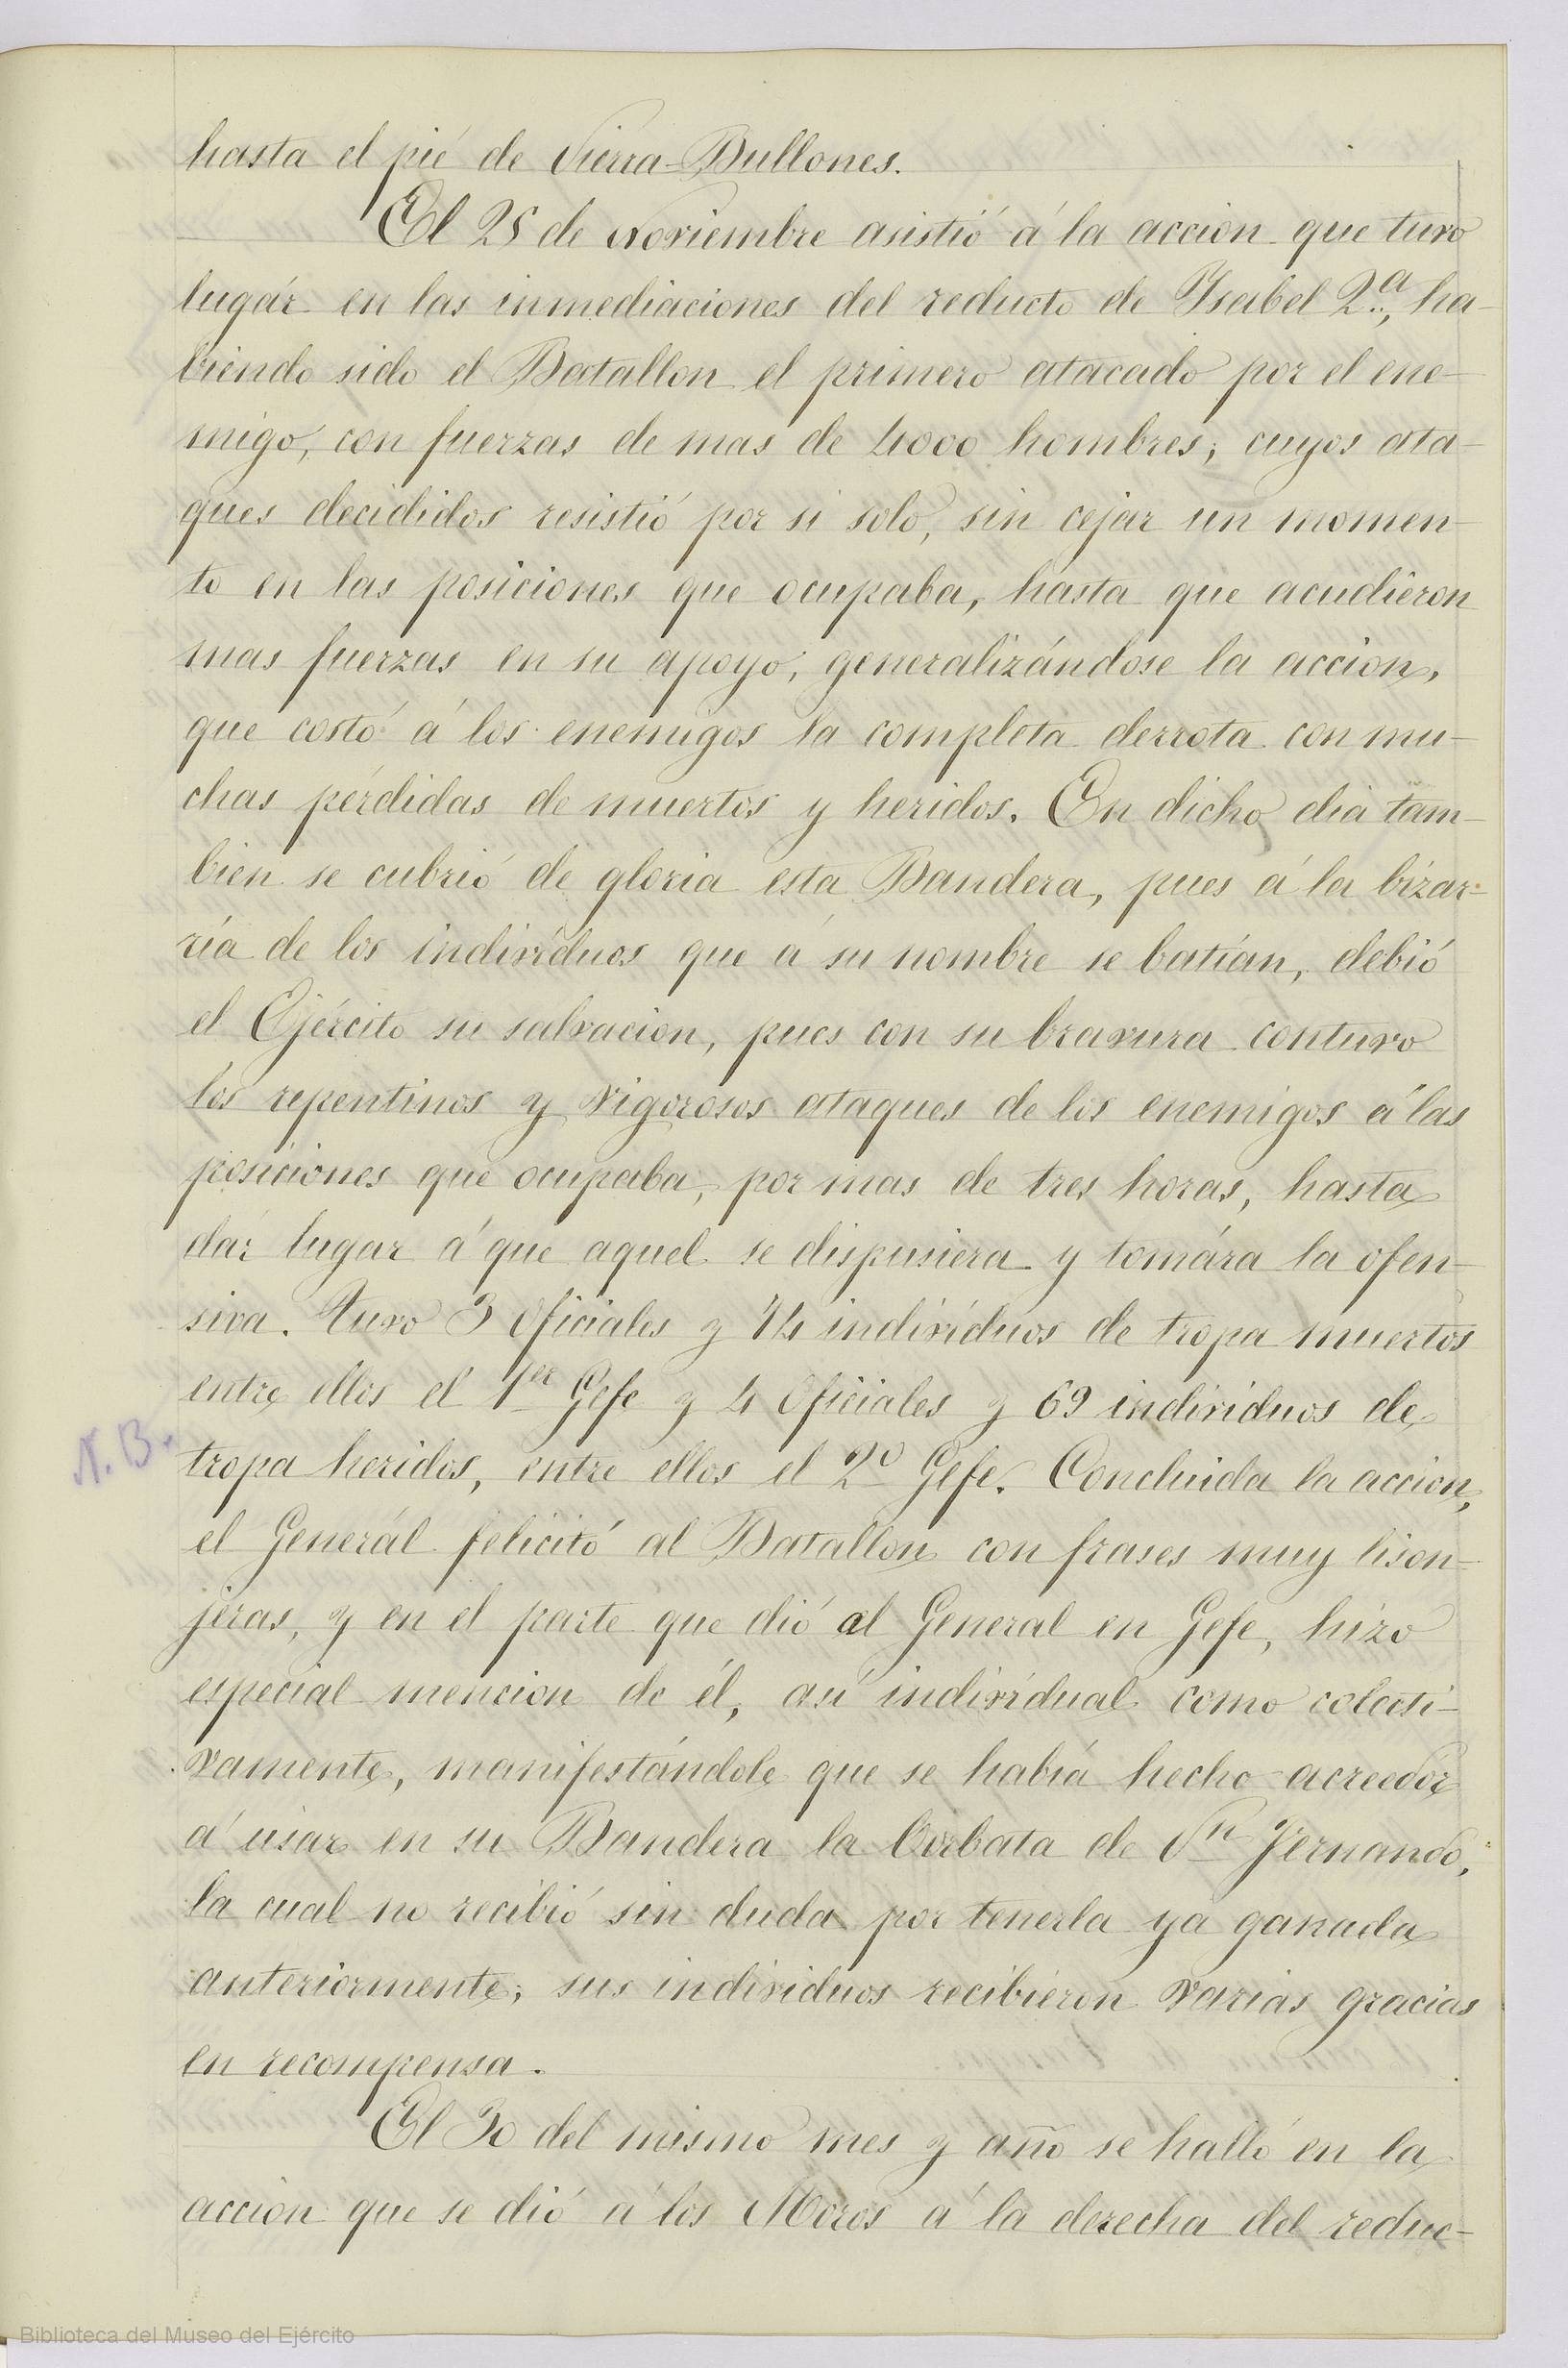 hasta el pié de Sierra-Bullones.
El 25 de Noviembre asistió á la accion que tuvo
lugár en las inmediaciones del reducto de Ysabel 2.ª, ha-
biendo sido el Batallon el primero atacado por el ene-
migo, con fuerzas de mas de 4000 hombres; cuyos ata-
ques decididos resistió por si solo, sin cejar un momen-
to en las posiciones que ocupaba, hasta que acudieron
mas fuerzas en su apoyo, generalizándose la accion,
que costó á los enemigos la completa derrota con mu-
chas pérdidas de muertos y heridos. En dicho dia tam-
bien se cubrió de gloria esta Bandera, pues á la bizar-
ría de los indivíduos que á su nombre se batían, debió
el Ejército su salvacion, pues con su bravura contuvo
los repentinos y vigorosos ataques de los enemigos á las
posiciones que ocupaba, por mas de tres horas, hasta
dar lugar á que aquel se dispusiera y tomára la ofen-
siva. Tuvo 3 Oficiales y 14 indivíduos de tropa muertos
entre ellos el 1er Gefe y 4 Oficiales y 69 individuos de
N.B.
tropa heridos, entre ellos el 2º Gefe. Concluida la accion,
el Generál felicitó al Batallon con frases muy lison-
jeras, y en el parte que dió al General en Gefe, hizo
especial mencion de él, así indivídual como colecti-
vamente, manifestándole que se habia hecho acreedor
á usar en su Bandera la Corbata de Sn Fernando,
la cual no recibió sin duda por tenerla ya ganada
anteriormente; sus individuos recibieron varias gracias
en recompensa.
El 30 del mismo mes y año se halló en la
accion que se dió á los Moros á la derecha del reduc-
Biblioteca del Museo del Ejército